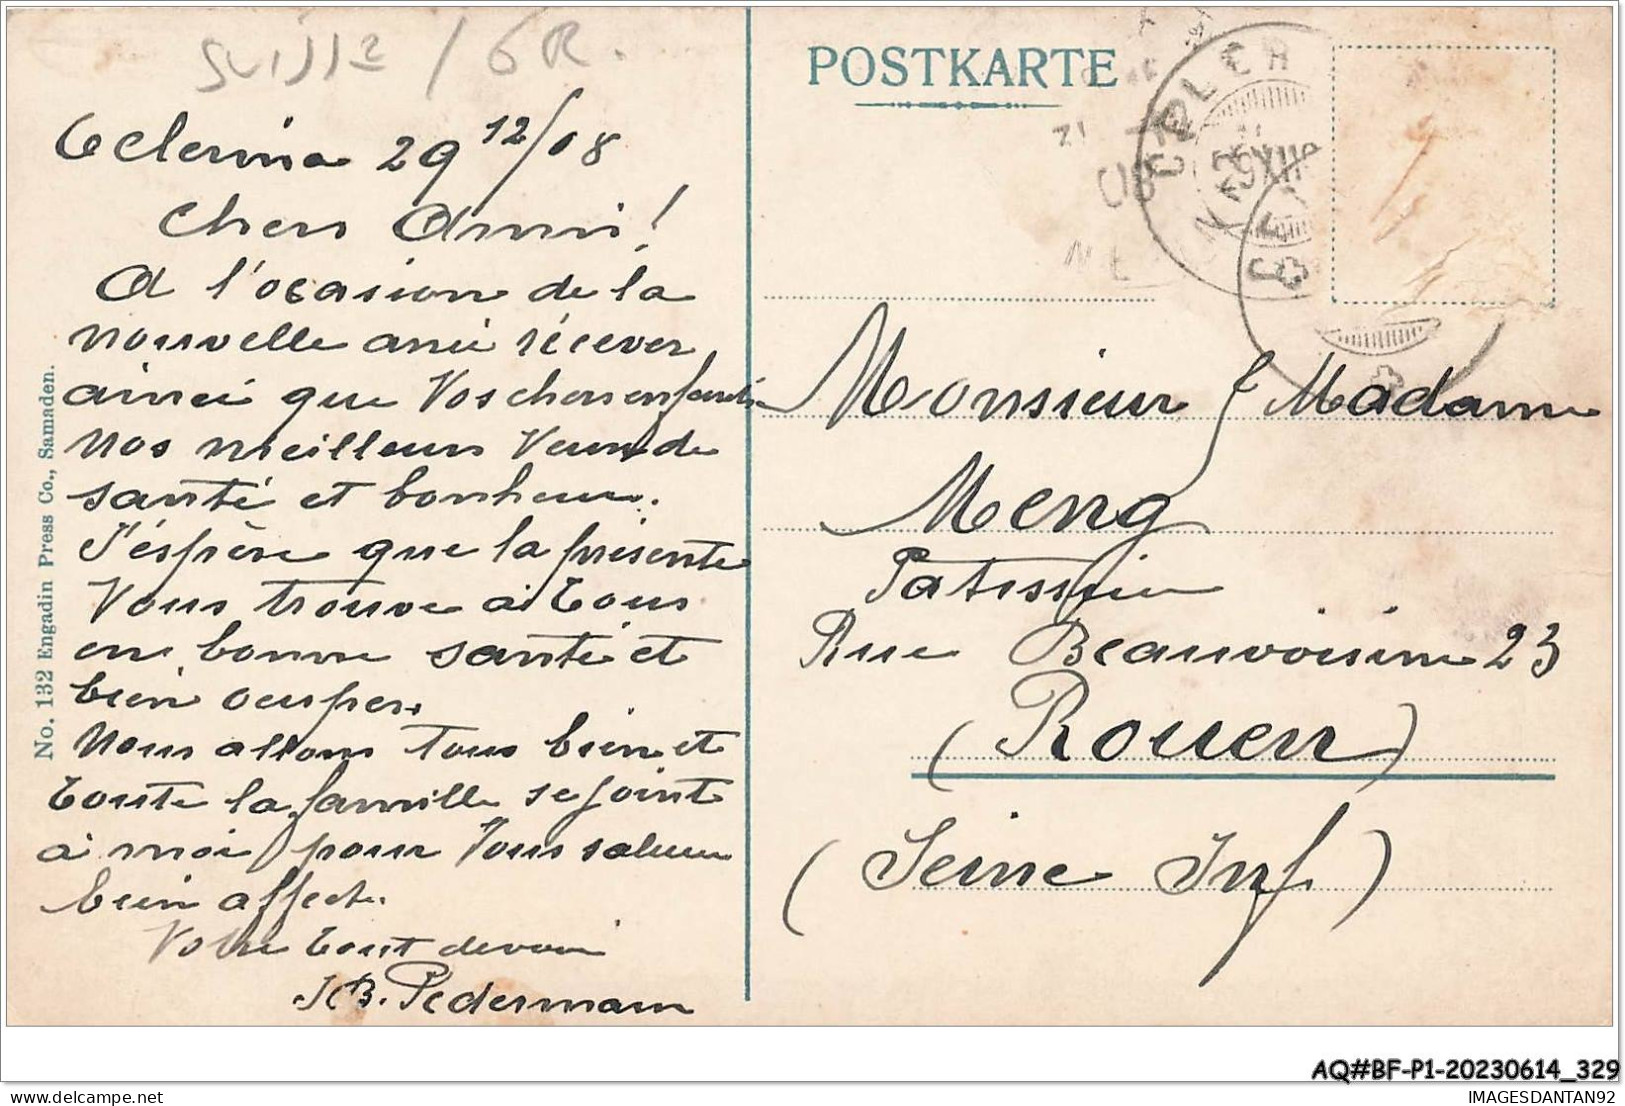 Suisse / GR.
Celerina 29 12/08
Chers Amis!
A l'ocasion de la
nouvelle anné récever
ainsi que Vos chers enfants
nos meilleurs Veux de
santé et bonheur.
J'éspère que la présente
Vous trouve à Tous
en bonne santé et
bien ocuper.
Nous allons tous bien et
toute la famille se joint
à moi pour Vous saluer
bien affect.
Votre tout devoué
J.B. Pedermann
No. 132 Engadin Press Co., Samaden.
POSTKARTE
Monsieur & Madame
Meng
Patisserie
Rue Beauvoisine 23
(Rouen)
(Seine Inf.)
AQ#BF-P1-20230614_329
IMAGESDANTAN92